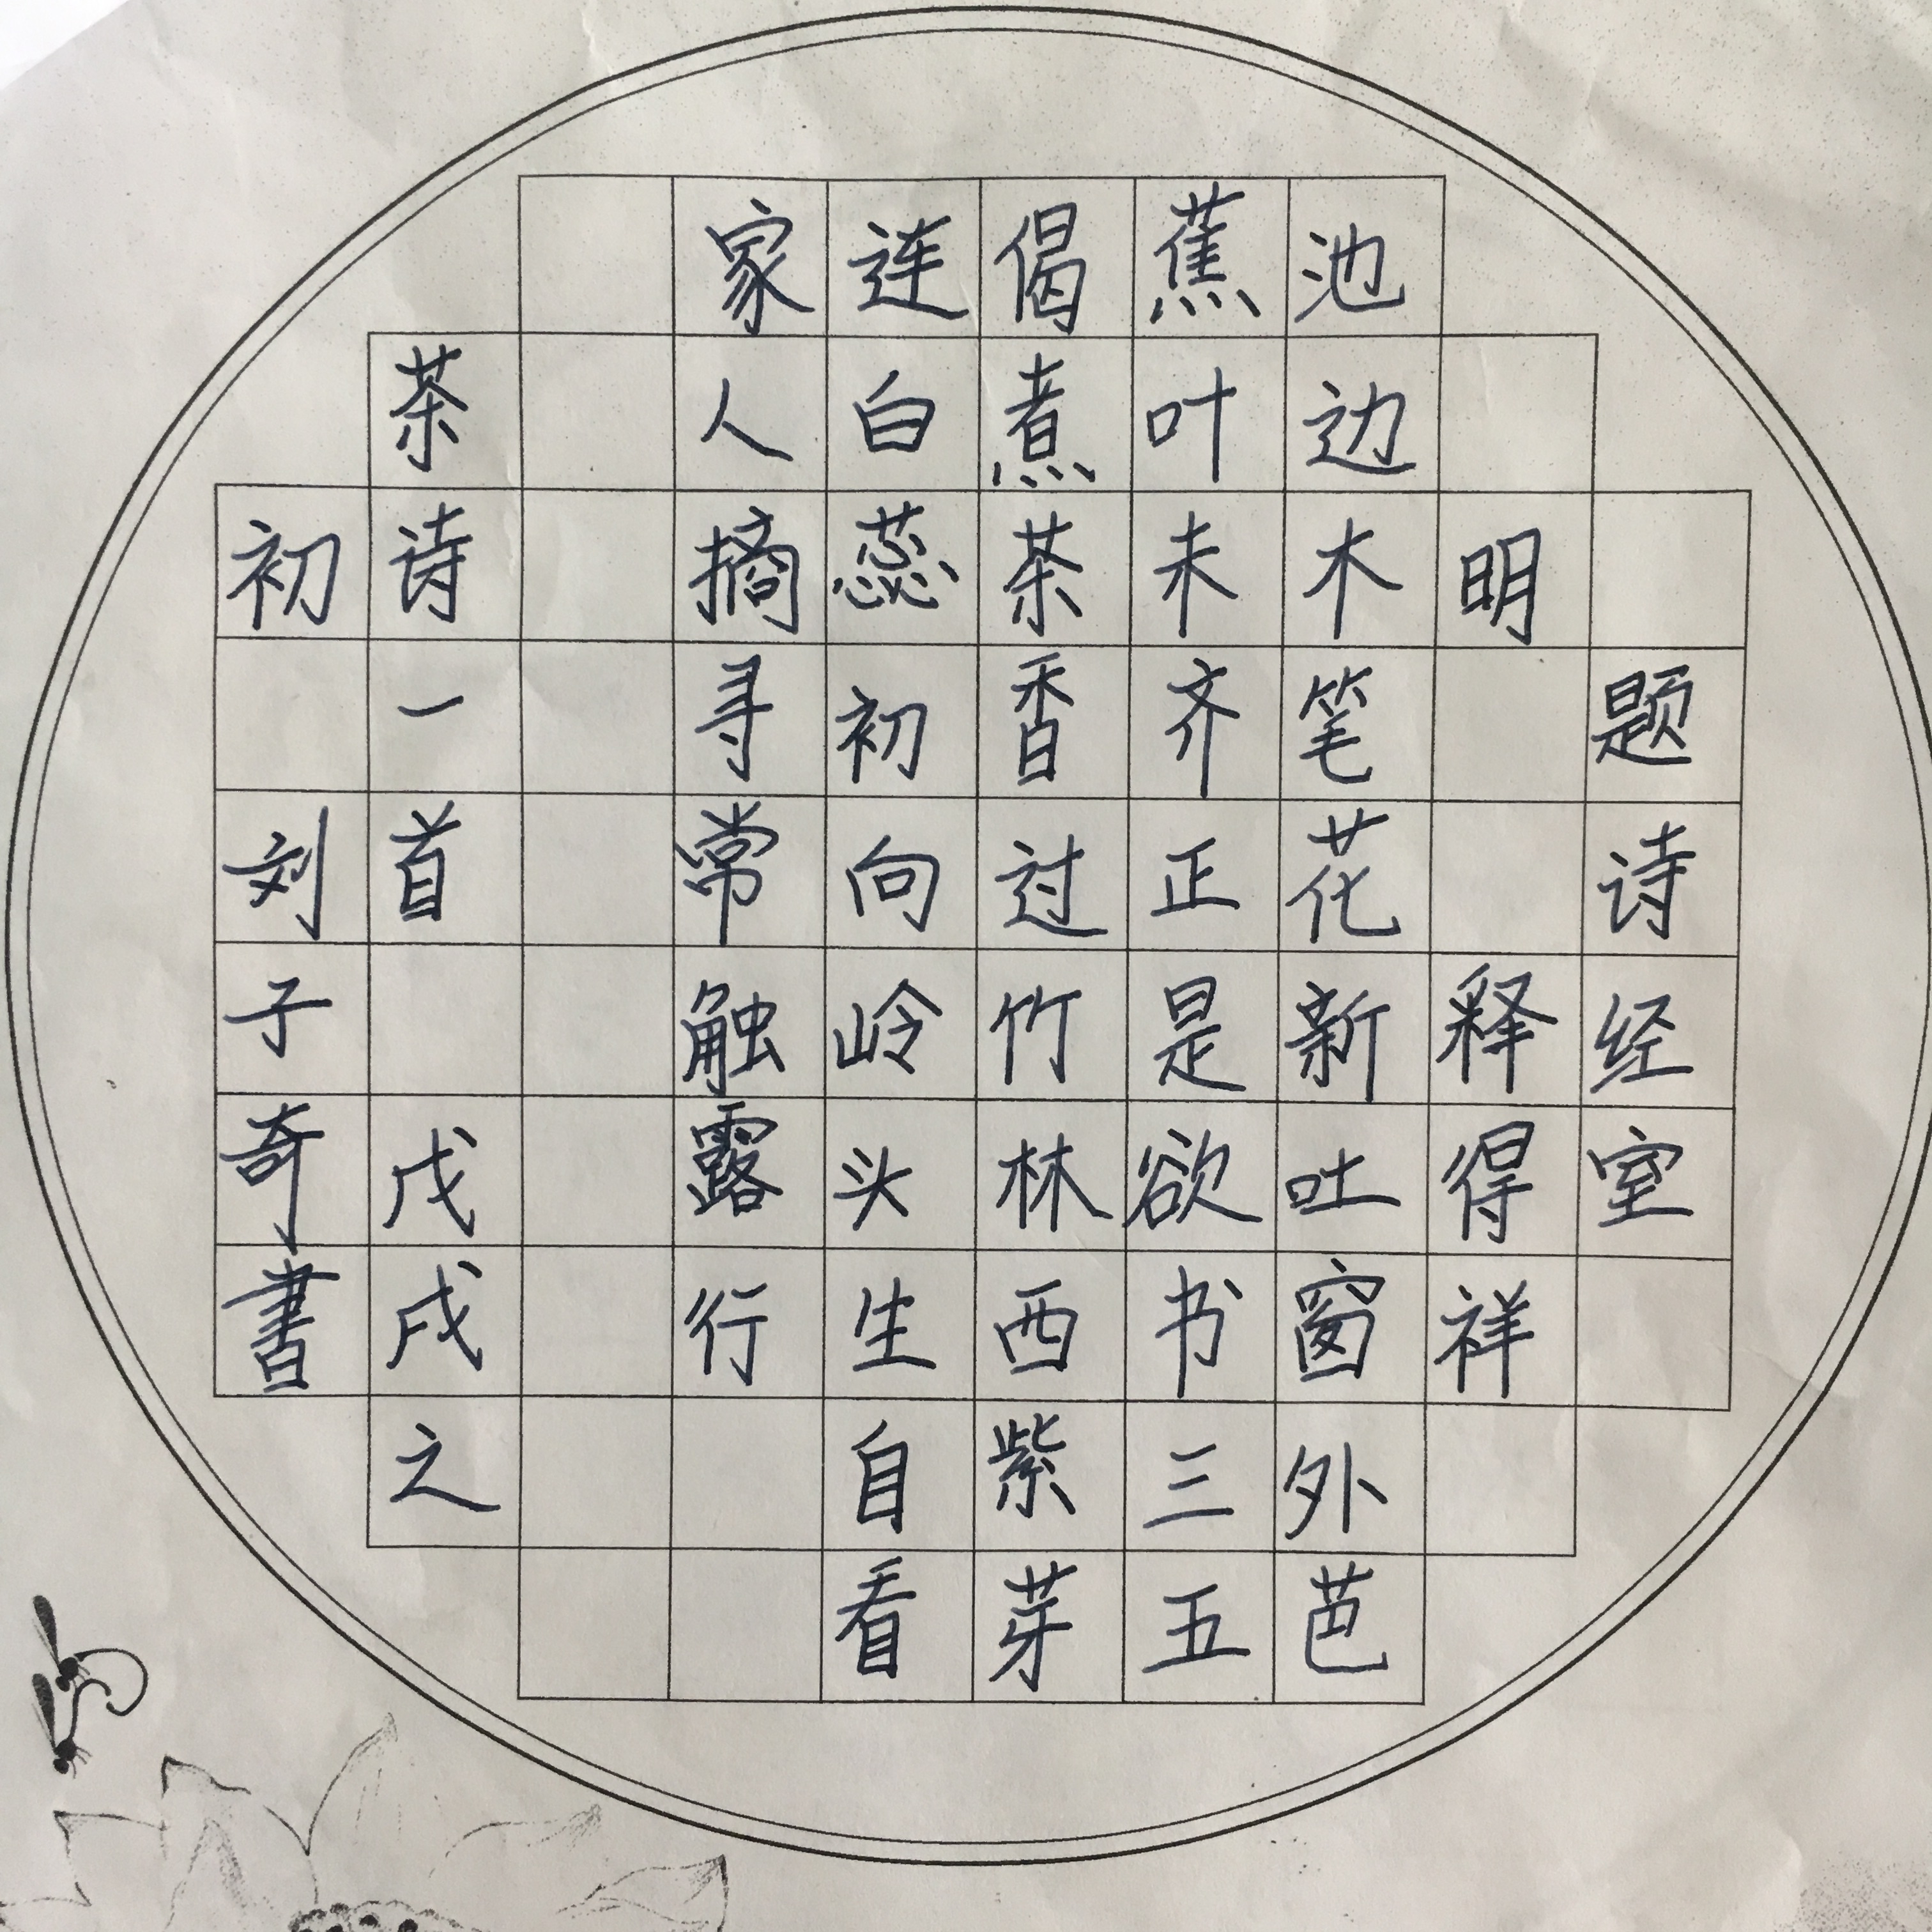 题诗经室
明释得祥
池边木笔花新吐窗外芭
蕉叶未齐正是欲书三五
偈煮茶香过竹林西紫芽
连白蕊初向岭头生自看
家人摘寻常触露行
茶诗一首戊戌之
初刘子奇書